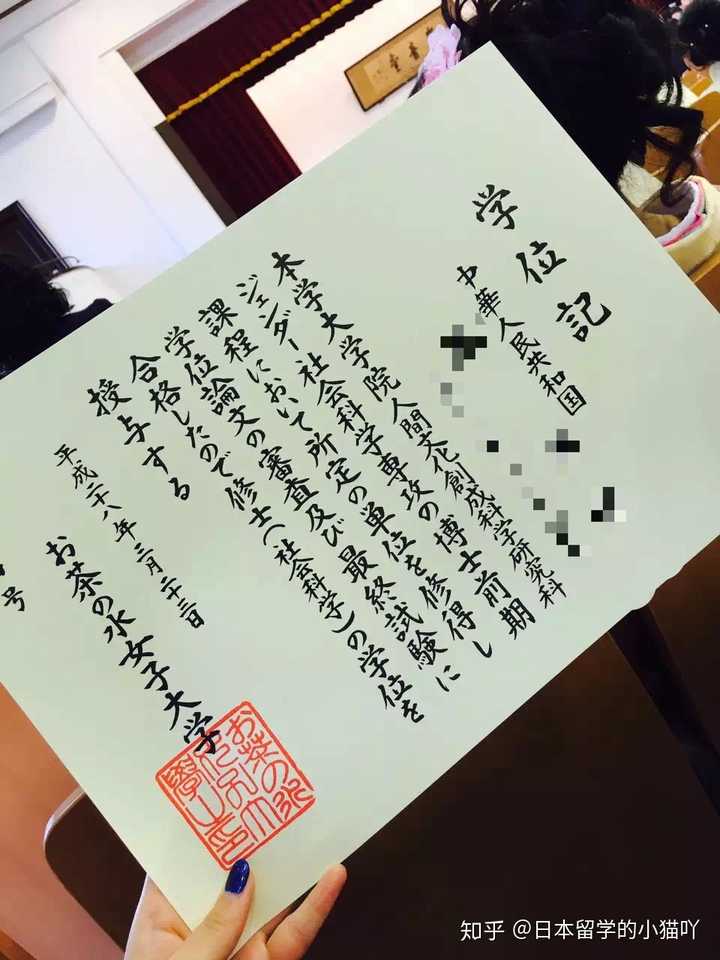 学位記
中華人民共和国
本学大学院人間文化創成科学研究科
ジェンダー社会科学専攻の博士前期
課程において所定の単位を修得し
学位論文の審査及び最終試験に
合格したので修士(社会科学)の学位を
授与する
平成二十八年三月二十三日
お茶の水女子大学
号
知乎 @日本留学的小猫吖